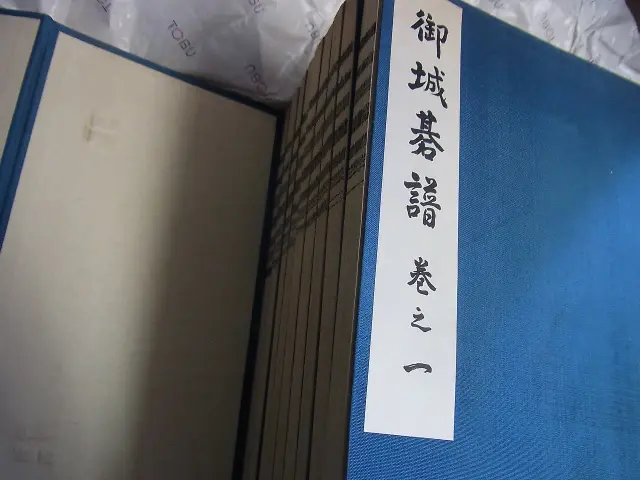 御城碁譜 巻之一
TOBU
TOBU